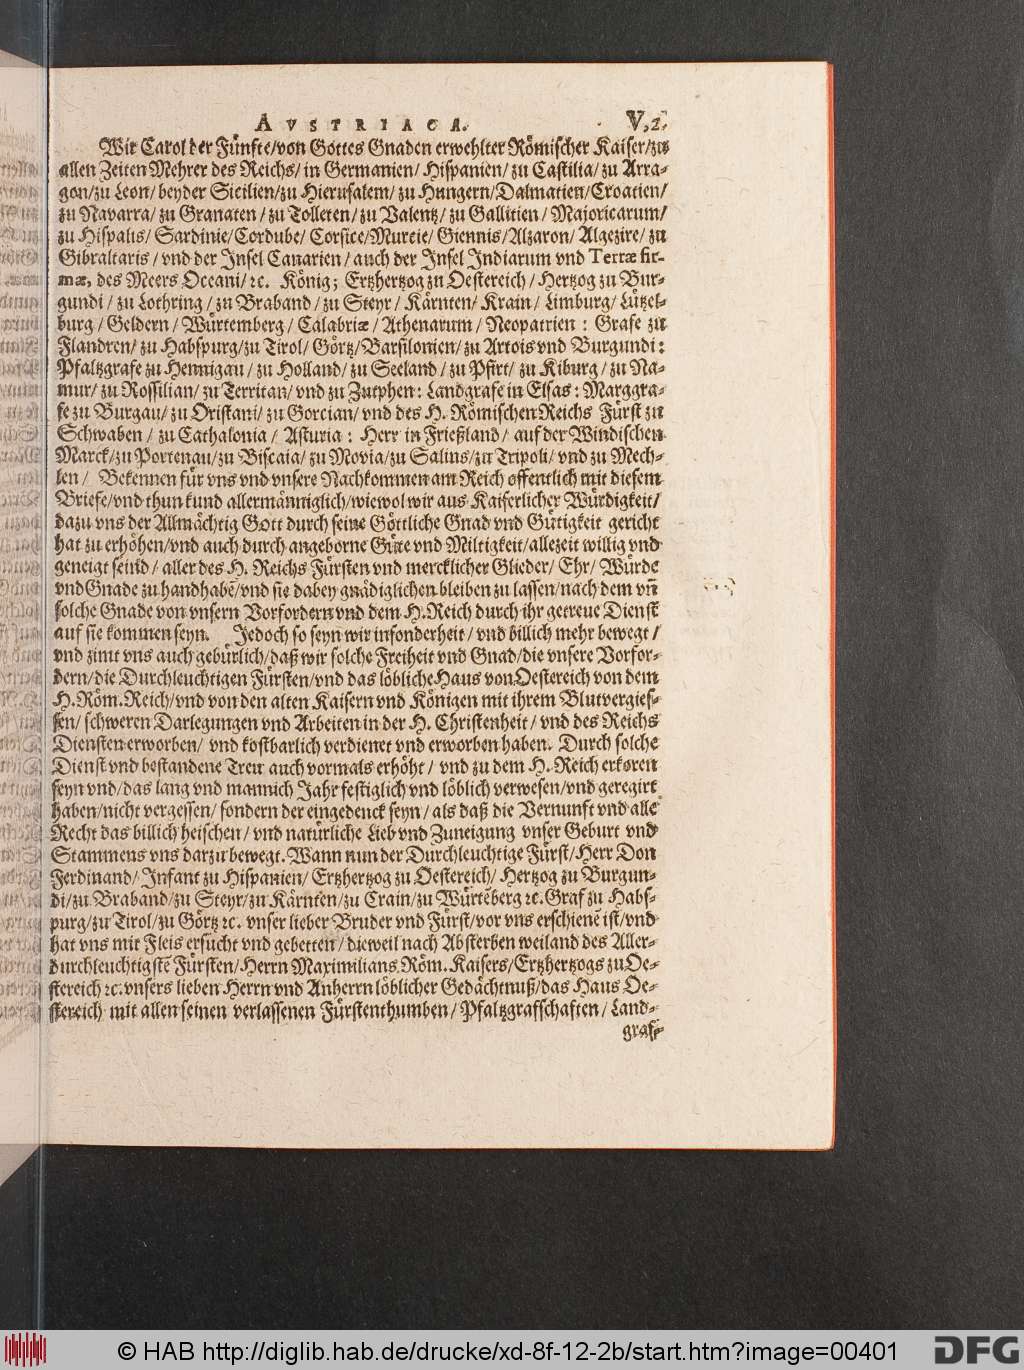 AVSTRIACA. V,2.
Wir Carol der Fünfte/von Gottes Gnaden erwehlter Römischer Kaiser/zu
allen Zeiten Mehrer des Reichs/in Germanien/Hispanien/zu Castilia/zu Arra-
gon/zu Leon/beyder Sicilien/zu Hierusalem/zu Hungern/Dalmatien/Croatien/
zu Navarra/zu Granaten/zu Tolleten/zu Valentz/zu Gallitien/Majoricarum/
zu Hispalis/Sardinie/Cordube/Corsice/Murcie/Giennis/Alzaron/Algezire/zu
Gibraltaris/vnd der Insel Canarien/auch der Insel Indiarum vnd Terræ fir-
mæ, des Meers Oceani/ꝛc. König; Ertzhertzog zu Oestereich/Hertzog zu Bur-
gundi/zu Lothring/zu Braband/zu Steyr/Kärnten/Krain/Limburg/Lützel-
burg/Geldern/Würtemberg/Calabriæ/Athenarum/Neopatrien: Grafe zu
Flandren/zu Habspurg/zu Tirol/Görtz/Barsilonien/zu Artois vnd Burgundi:
Pfaltzgrafe zu Hennigau/zu Holland/zu Seeland/zu Pfirt/zu Kiburg/zu Na-
mur/zu Rossilian/zu Territan/vnd zu Zutphen: Landgrafe in Elsas: Marggra-
fe zu Burgau/zu Oristani/zu Gorcian/vnd des H. Römischen Reichs Fürst zu
Schwaben/zu Cathalonia/Asturia: Herr in Frießland/auf der Windischen
Marck/zu Portenau/zu Biscaia/zu Movia/zu Salins/zu Tripoli/vnd zu Mech-
len/ Bekennen für vns vnd vnsere Nachkommen am Reich offentlich mit diesem
Briefe/vnd thun kund allermänniglich/wiewol wir aus Kaiserlicher Würdigkeit/
dazu vns der Allmächtig Gott durch seine Göttliche Gnad vnd Gütigkeit gericht
hat zu erhöhen/vnd auch durch angeborne Güte vnd Miltigkeit/allezeit willig vnd
geneigt seind/aller des H. Reichs Fürsten vnd mercklicher Glieder/Ehr/Würde
vnd Gnade zu handhabē/vnd sie dabey gnädiglichen bleiben zu lassen/nach dem vñ
solche Gnade von vnsern Vorfordern vnd dem H. Reich durch ihr getreue Dienst
auf sie kommen seyn. Jedoch so seyn wir insonderheit/vnd billich mehr bewegt/
vnd zimt vns auch gebürlich/daß wir solche Freiheit vnd Gnad/die vnsere Vorfor-
dern/die Durchleuchtigen Fürsten/vnd das löbliche Haus von Oestereich von dem
H. Röm. Reich/vnd von den alten Kaisern vnd Königen mit ihrem Blutvergies-
sen/schweren Darlegungen vnd Arbeiten in der H. Christenheit/vnd des Reichs
Diensten erworben/vnd kostbarlich verdienet vnd erworben haben. Durch solche
Dienst vnd bestandene Treu auch vormals erhöht/vnd zu dem H. Reich erkoren
seyn vnd/das lang vnd mannich Jahr festiglich vnd löblich verwesen/vnd geregirt
haben/nicht vergessen/sondern der eingedenck seyn/als daß die Vernunft vnd alle
Recht das billich heischen/vnd natürliche Lieb vnd Zuneigung vnser Geburt vnd
Stammens vns darzu bewegt. Wann nun der Durchleuchtige Fürst/Herr Don
Ferdinand/Infant zu Hispanien/Ertzhertzog zu Oestereich/Hertzog zu Burgun-
di/zu Braband/zu Steyr/zu Kärnten/zu Crain/zu Würtēberg ꝛc. Graf zu Habs-
purg/zu Tirol/zu Görtz ꝛc. vnser lieber Bruder vnd Fürst/vor vns erschienē ist/vnd
hat vns mit Fleis ersucht vnd gebetten/dieweil nach Absterben weiland des Aller-
durchleuchtigstē Fürsten/Herrn Maximilians Röm. Kaisers/Ertzhertzogs zu Oe-
stereich ꝛc. vnsers lieben Herrn vnd Anherrn löblicher Gedächtnuß/das Haus Oe-
stereich mit allen seinen verlassenen Fürstenthumben/Pfaltzgrafschaften/Land-
graf-
© HAB http://diglib.hab.de/drucke/xd-8f-12-2b/start.htm?image=00401
DFG